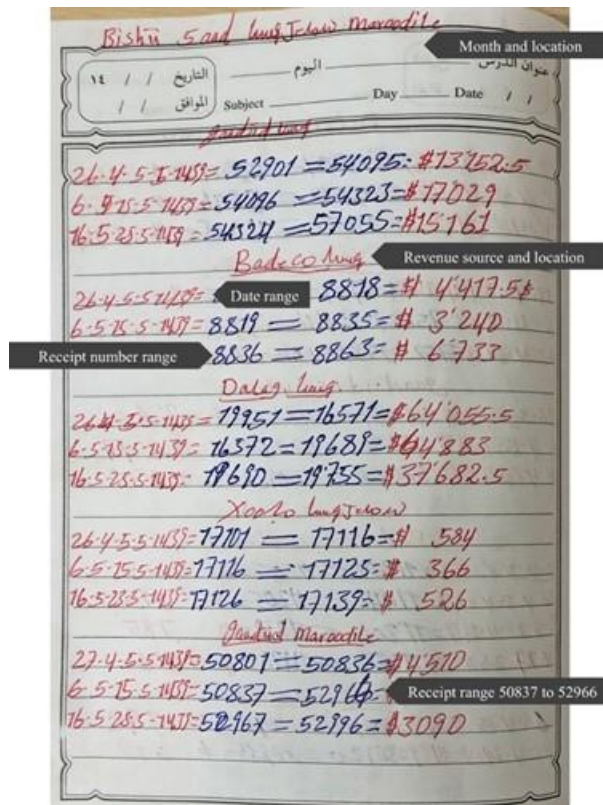 Bishii 5aad luuq Jelow Maroodile
Month and location
التاريخ / / ١٤ اليوم عنوان الدرس
الموافق / / Subject Day Date / /
gaadiid luuq
26-4-5-5-1439= 52901 = 54095= $13'152.5
6-5-15-5-1439= 54096 = 54323=$17029
16-5-25-5-1439= 54324 = 57055=$15'161
Badeco luuq
Revenue source and location
26-4-5-5-1439= Date range 8818=$ 4'417.5
6-5-15-5-1439= 8819 = 8835=$ 3'240
Receipt number range 8836 = 8863=$ 6'733
Dalag luuq
19951=16571=$64'055.5
6-5-15-5-1439= 16572=19689=$64'883
16-5-25-5-1439= 19690 =19755=$37'682.5
Xoolo luuq Jelow
26-4-5-5-1439=17101 = 17116=$ 584
6-5-15-5-1439=17116 = 17125=$ 366
16-5-25-5-1439=17126 = 17139=$ 526
gaadiid Maroodile
27-4-5-5-1439=50801=50836=$4'510
6-5-15-5-1439=50837=52966 Receipt range 50837 to 52966
16-5-28-5-1439=52967 = 52996=$3090